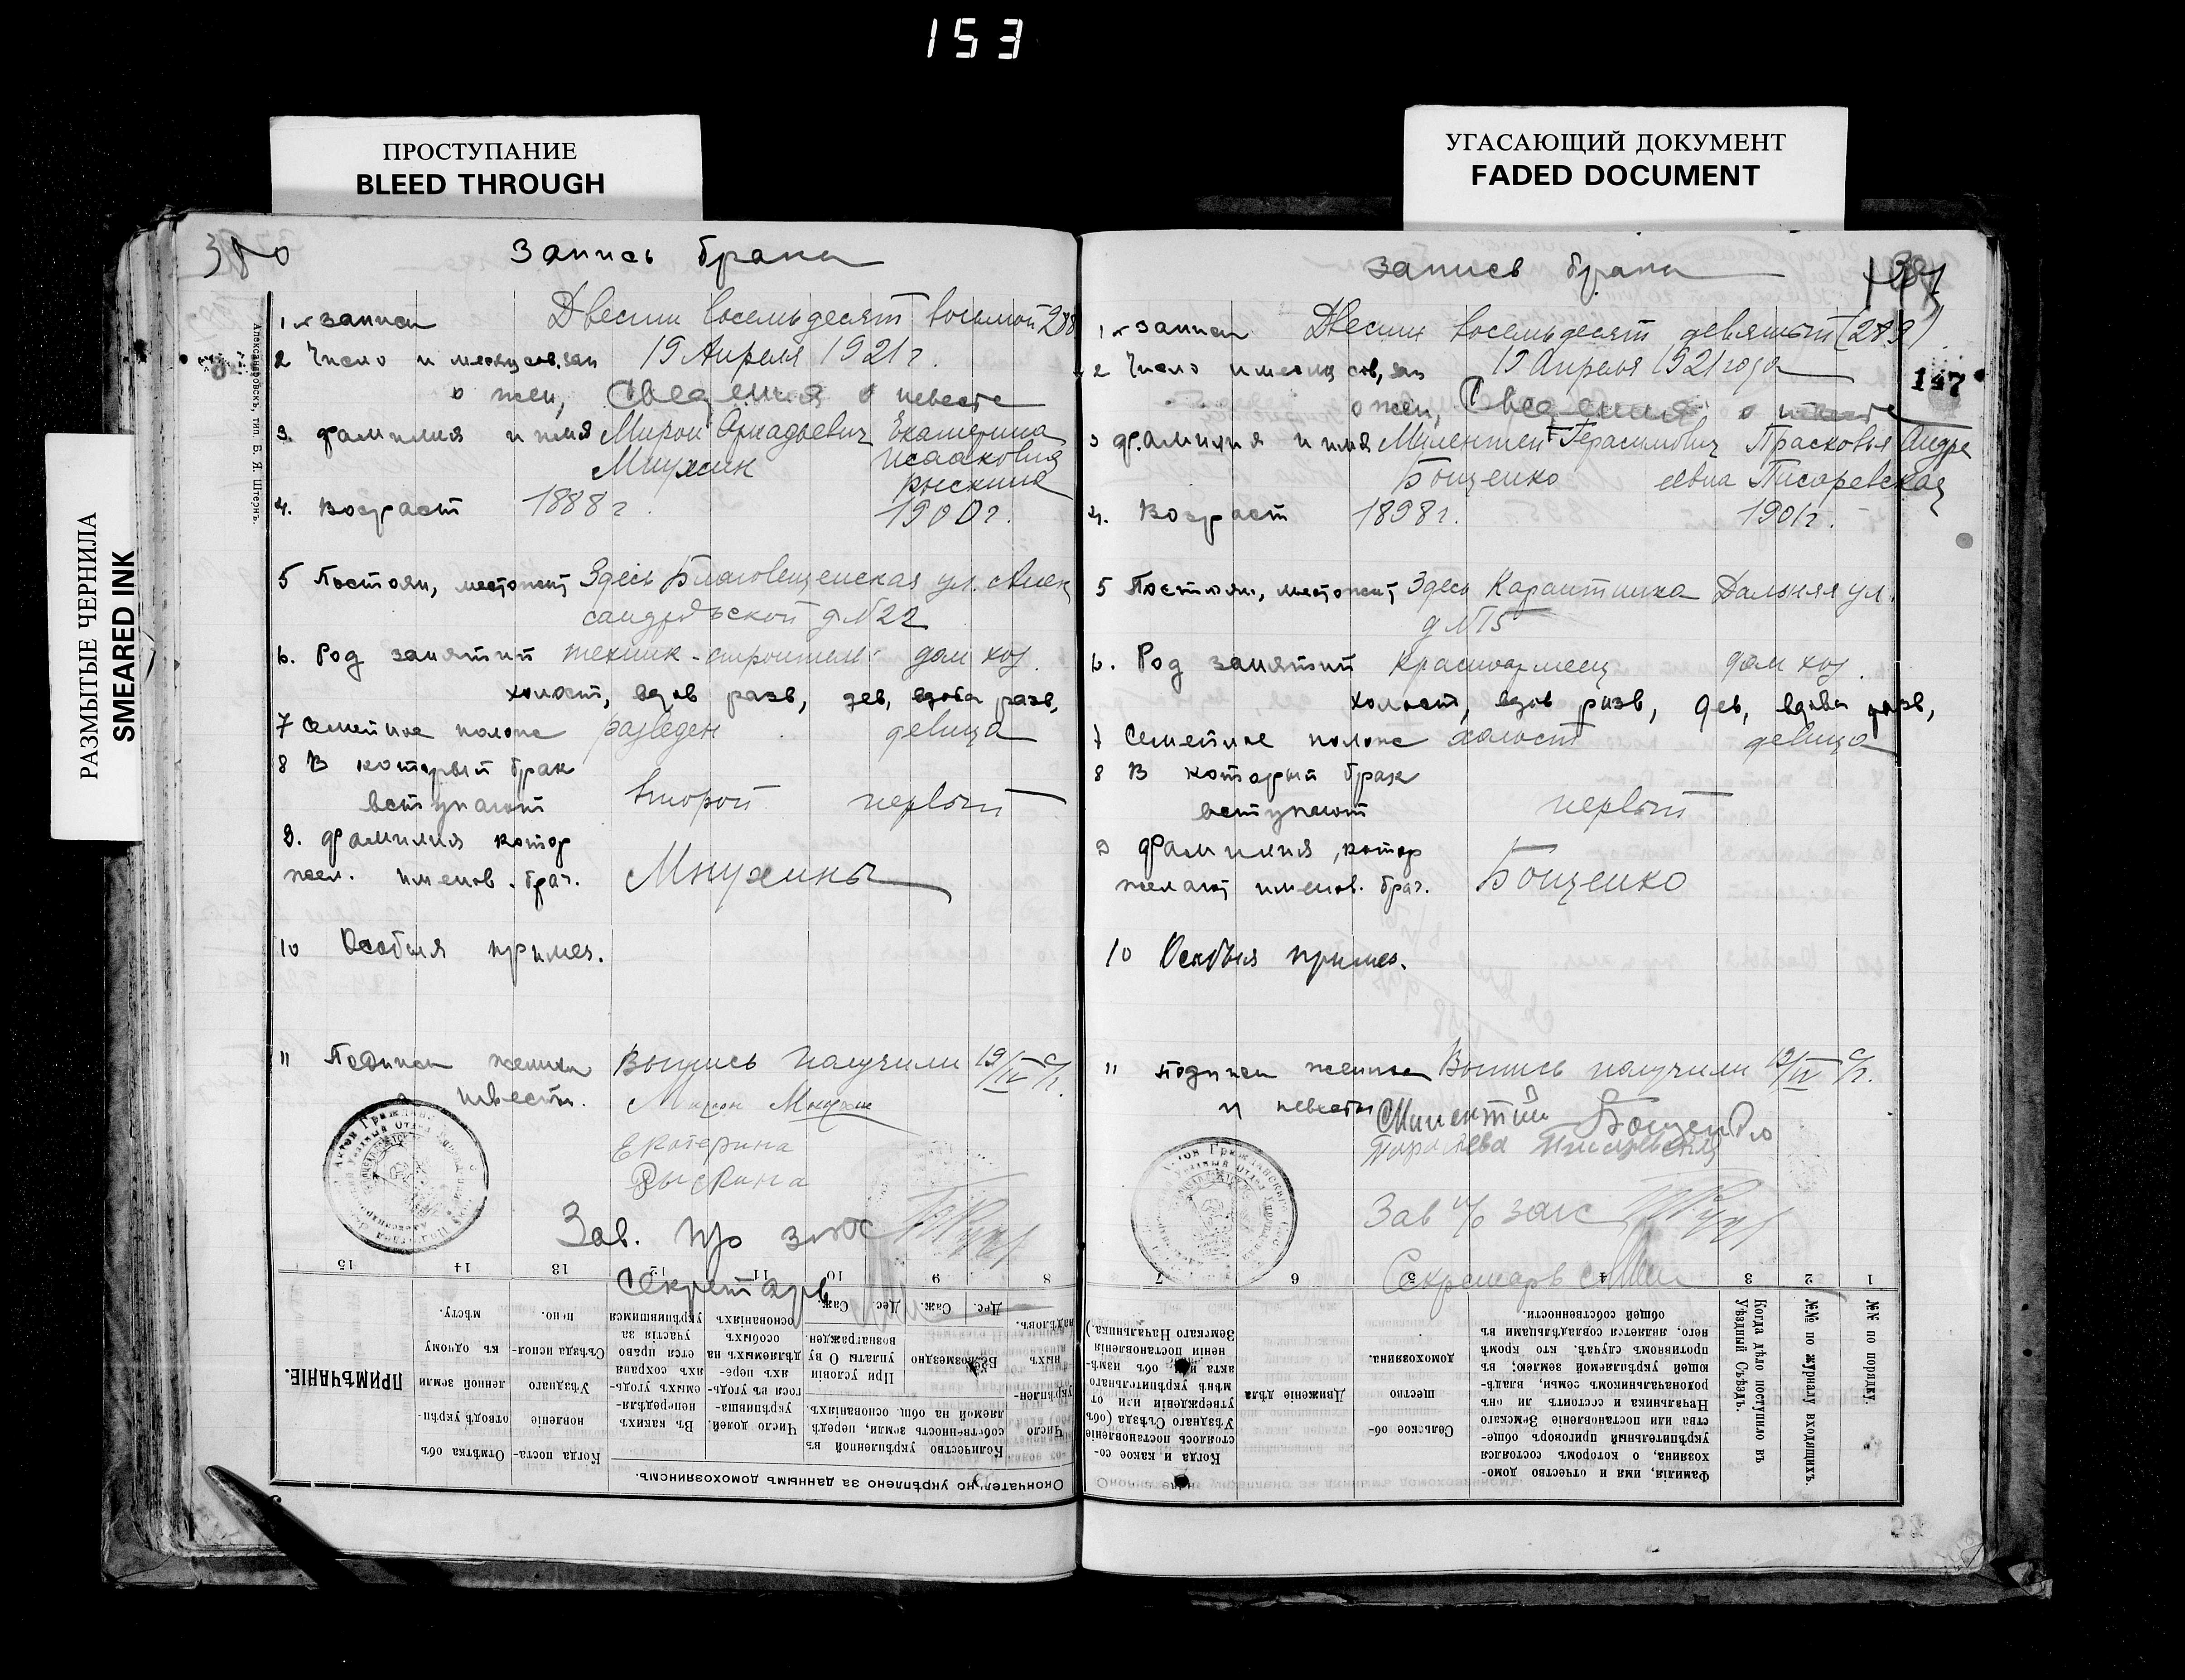 153
ПРОСТУПАНИЕ
BLEED THROUGH
УГАСАЮЩИЙ ДОКУМЕНТ
FADED DOCUMENT
РАЗМЫТЫЕ ЧЕРНИЛА
SMEARED INK
380
Запись брака
1 № записи Двести восемьдесят восьмой 288
2 Число и месяц сов. зап 19 Апреля 1921 г.
о жен, Сведения о невесте
3. фамилия и имя Мирон Аркадьевич Екатерина
Мнухин Исааковна
Рыскина
4. Возраст 1888 г. 1900 г.
5 Постоян, местожит, Здесь Благовещенская ул. Алек
сандровской д №22
6. Род занятий техник-строитель дом хоз.
холост, вдов разв, дев, вдова разв,
7 Семейное полож разведен девица
8 В который брак
вступают второй первый
9. фамилия котор
жел. именов. брач. Мнухины
10 Особыя примеч.
11 Подписи жениха Выпись получили 19/IV с/г.
и невесты. Мирон Мнухин
Екатерина
Рыскина
Зав. п/о загс
Секретарь
Александровскъ, тип. Б. Я. Штернъ.
8 9 10 11 12 13 14 15
Окончательно укрѣплено за даннымъ домохозяиномъ.
Количество укрѣпленной въ собственность земли, передѣляемой на общ. основаніяхъ.
Безвозмездно
При условіи уплаты О ву вознагражден.
Дес. Саж. Дес. Саж.
Когда поста-
новленіе
Уѣзднаго
Съѣзда испол-
нено.
Отмѣтка объ
отводѣ укрѣп-
ленной земли
къ одному
мѣсту.
ПРИМѢЧАНІЕ.
Запись брака
147
1 № записи Двести восемьдесят девятый (289)
2 Число и месяц сов, зап 19 Апреля 1921 года
о жен, Сведения о невесте
3 фамилия и имя Милентий Герасимович Прасковья Андре
Бощенко евна Писаревская
4. Возраст 1898 г. 1901 г.
5 Постоян, местожит, Здесь Карантинка Дальняя ул.
д №15
6. Род занятий Красноармеец дом хоз.
холост, вдов разв, дев, вдова разв,
7 Семейное полож холост девица
8 В который брак
вступают первый
9 Фамилия, котор
желают именов. брач. Бощенко
10 Особыя примеч.
11 подписи жениха Выпись получили 19/IV с/г.
и невесты Милентий Бощенко
Писаревская
Зав п/о загс
Секретарь
1 2 3 4 5 6 7
№№ по порядку.
№№ по журналу входящихъ.
Когда дѣло поступило въ
Уѣздный Съѣздъ.
Фамилія, имя и отчество домо-
хозяина, о которомъ состоялся
укрѣпительный приговоръ обще-
ства или постановленіе Земскаго
Начальника и состоитъ ли онъ
родоначальникомъ семьи, владѣ-
ющей укрѣпляемой землею; въ
противномъ случаѣ, кто кромѣ
него, является совладѣльцами въ
общей собственности.
Сельское об-
щество
домохозяина.
Движеніе дѣла
Когда и какое со-
стоялось постановленіе
Уѣзднаго Съѣзда (объ
утвержденіи или от-
мѣнѣ укрѣпительнаго
акта или объ измѣ-
неніи постановленія
Земскаго Начальника.)